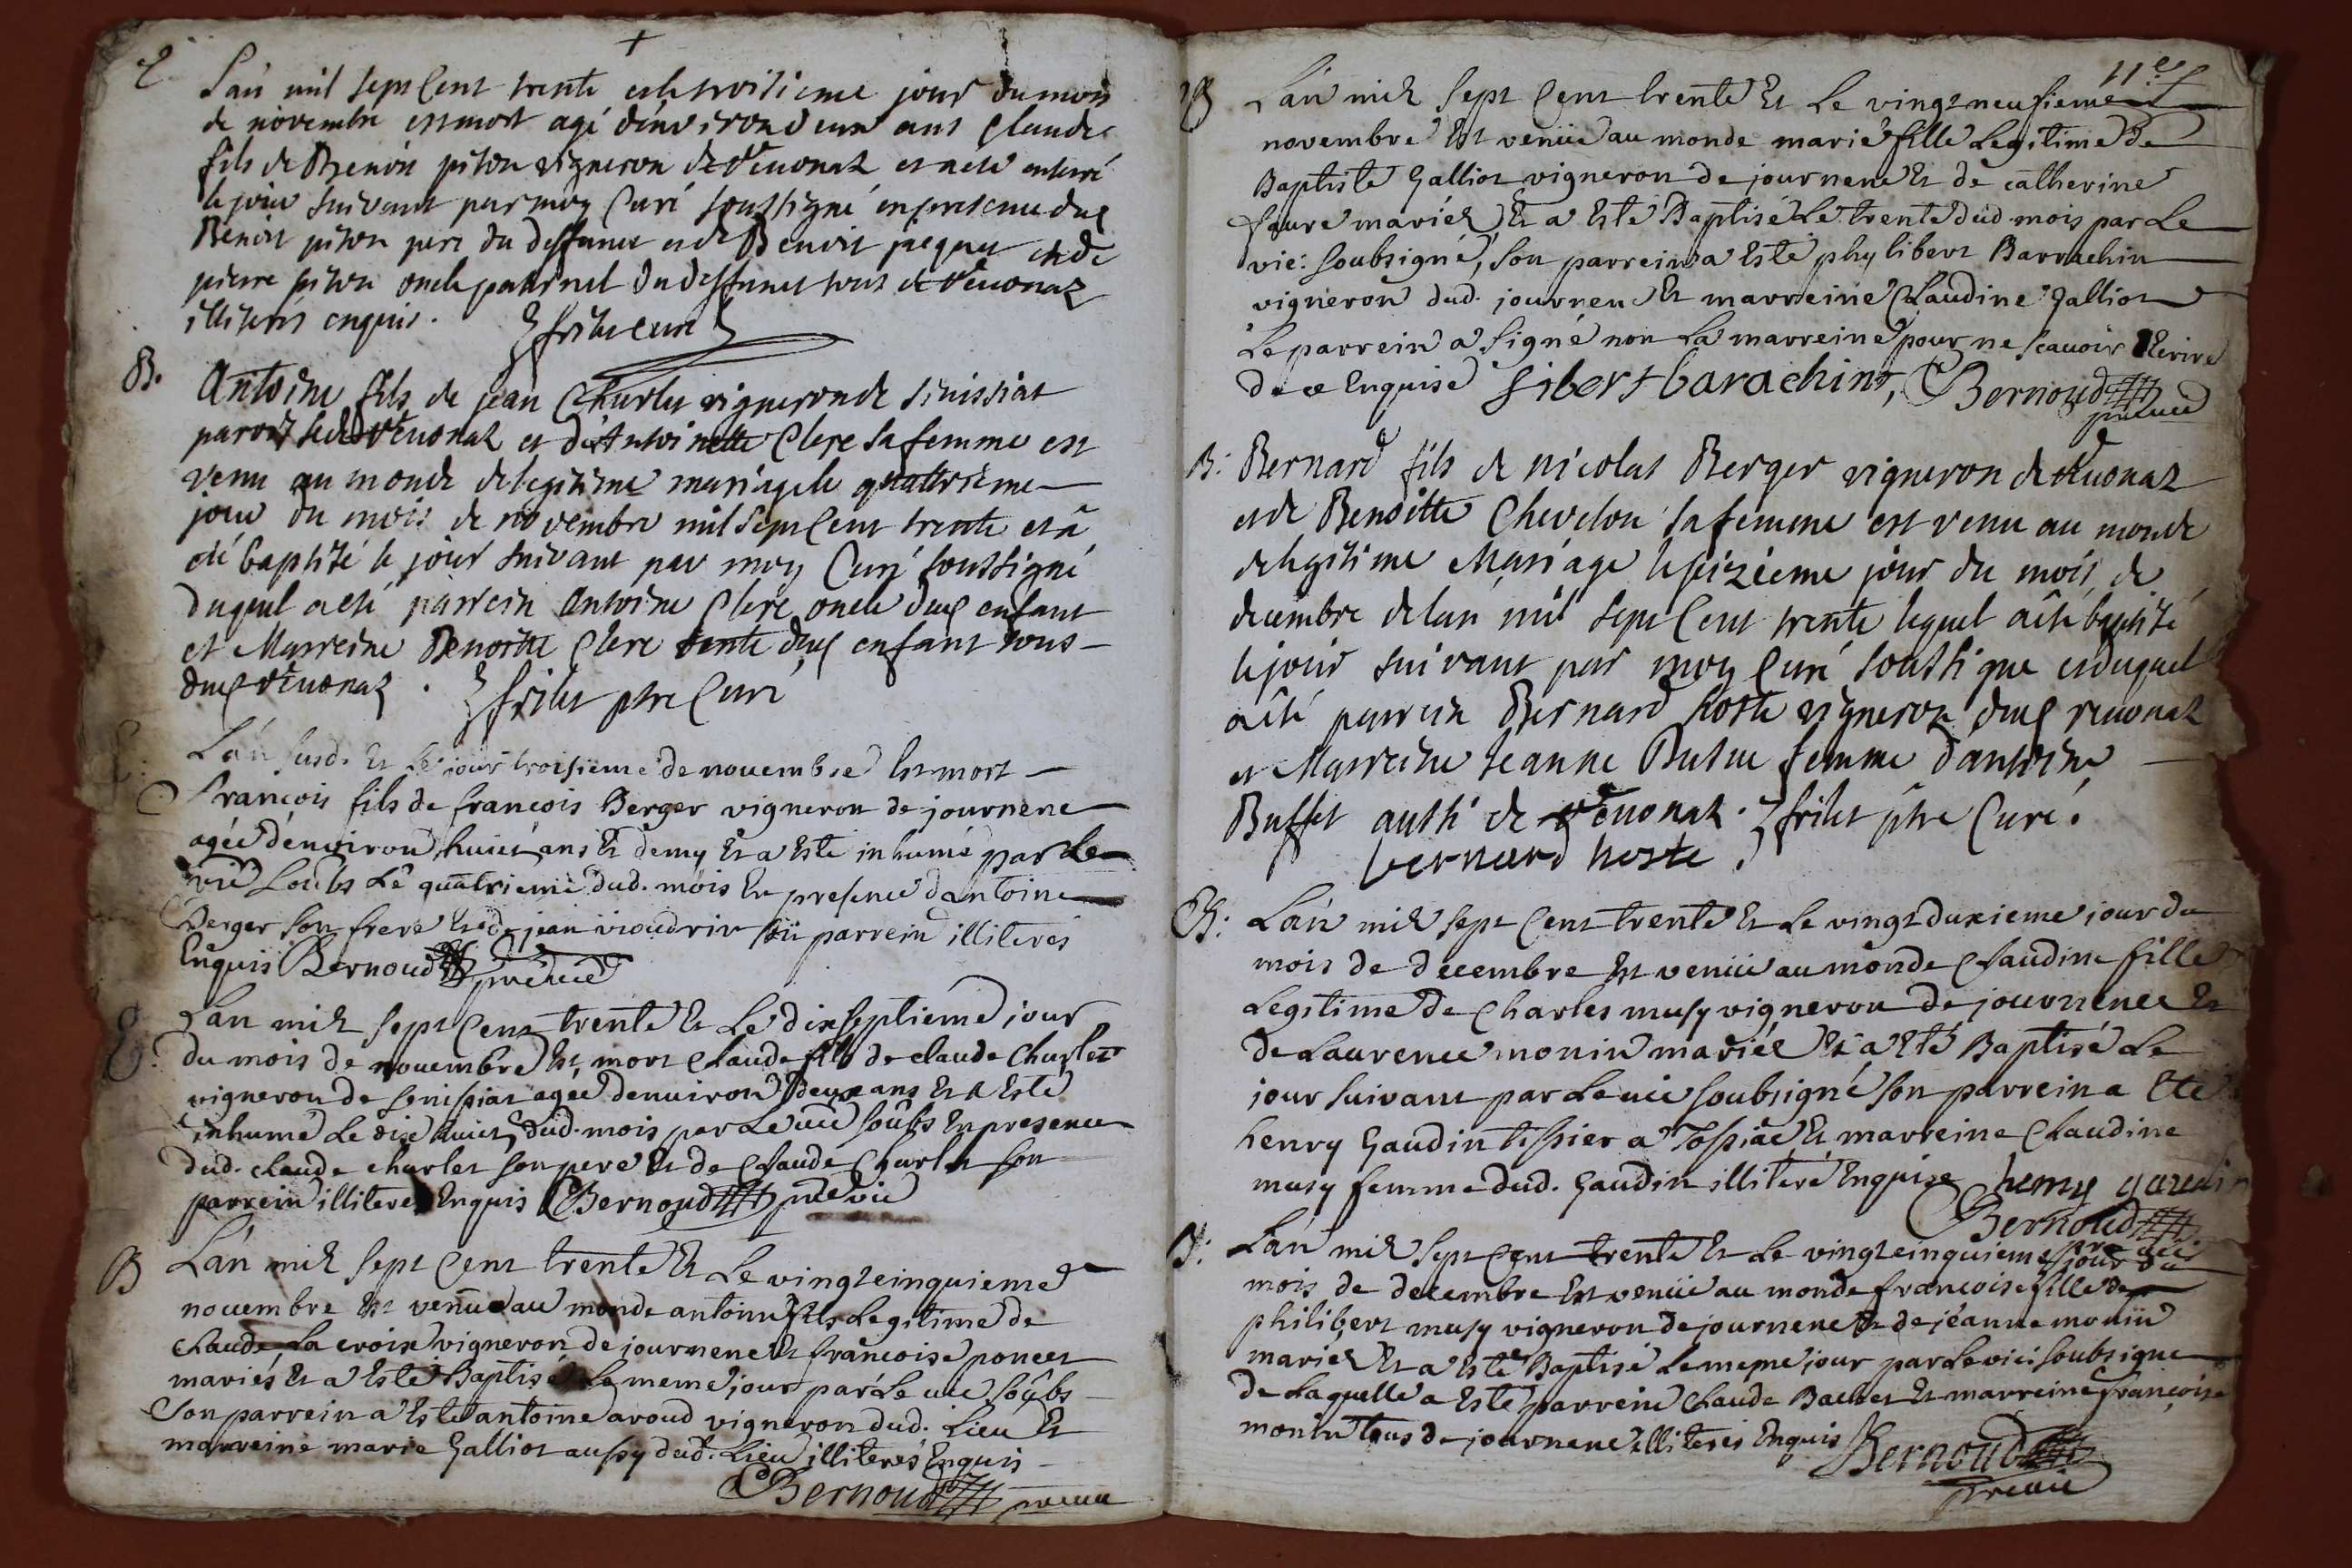 +
L'an mil sept Cent trente et le troisieme jour du mois
de novembre est mort agé d'environ deux ans Claude
fils de Benoit piton vigneron de Reuonaz et a eté enterré
le jour suivant par moy Curé soussigné en presence dud
Benoit piton pere du deffunct et de Benoit jacquet et de
pierre piton oncle paternel du deffunct tous de Reuonaz
illiterés enquis. frilet curé
B. Antoine fils de jean Charlet vigneron de Sinissiat
paroisse de Reuonaz et d'Antoinette Clere sa femme est
venu au monde de legitime mariage le quattrieme
jour du mois de novembre mil sept Cent trente et a
eté baptisé le jour suivant par moy Curé soussigné
duquel a eté parrein Antoine Clere oncle dud enfant
et Marreine Benoitte Clere tente dud enfant tous
dud Reuonaz. frilet ptre Curé
L'an susd. Et Le jour troisieme de nouembre Est mort
François fils de françois Berger vigneron de journene
agée d'enuiron huict ans Et demy Et a Esté inhumé par Le
vic soubs Le quatrieme dud. mois En presence d'antoine
Berger son frere Et de jean vioudrin son parrein illiterés
Enquis Bernoud pre vic
L'an mil sept Cent trente Et Le dix septieme jour
du mois de nouembre Est mort Claude fils de claude Charlet
vigneron de senissiat agée d'enuiron deux ans Et a Esté
inhumé Le dix huict dud. mois par Le vic soubs En presence
dud. claude charlet son pere Et de Claude Charlet son
parrein illiteres Enquis Bernoud pre vic
B L'an mil sept Cent trente Et Le vingt cinquieme
nouembre Est venu au monde antoine fils Legitime de
Claude La croix vigneron de journene Et françoise poncet
mariés Et a Esté Baptisé Le meme jour par Le vic soubs
Son parrein a Esté antoine aroud vigneron dud. Lieu Et
marreine marie Galliot aussy dud. Lieu illiterés Enquis
Bernoud pre vic
11e
B L'an mil sept Cent trente Et Le vingt neufieme
novembre Est venüe au monde marie fille Legitime de
Baptiste Galliot vigneron de journene Et de catherine
faure mariés Et a Esté Baptisé Le trente dud. mois par Le
vic: soubsigné, son parrein a Esté phylibert Barrachin
vigneron dud. journene Et marreine Claudine Galliot
Le parrein a signé non La marreine pour ne scauoir Ecrire
de ce Enquise fibert barachint, Bernoud
pre vic
B: Bernard fils de nicolas Berger vigneron de Reuonaz
et de Benoitte Chevelon sa femme est venu au monde
de legitime Mariage le seizieme jour du mois de
decembre de lan mil sept Cent trente lequel a eté baptisé
le jour suivant par moy Curé soussigné et duquel
a eté parrein Bernard hoste vigneron dud reuonaz
et Marreine Jeanne femme d'antoine
Buffet aussi de Reuonaz. frilet ptre Curé.
bernard hoste
B: L'an mil sept Cent trente Et Le vingt duxieme jour du
mois de decembre Est venüe au monde Claudine fille
Legitime de Charles musy vigneron de journene Et
de Laurence monin mariés Et a Eté Baptisé Le
jour suivant par Le vic soubsigné son parrein a Eté
henry Gaudin tissier a Tossiac Et marreine Claudine
musy femme dud. Gaudin illiteré Enquise henry gaudin
Bernoud
pre vic
B: L'an mil sept Cent trente Et Le vingt cinquieme jour du
mois de decembre Est venüe au monde francoise fille de
philibert musy vigneron de journene Et de jeanne monin
mariés Et a Esté Baptisé Le meme jour par Le vic: soubsigné
de Laquelle a Esté parrein Claude Bachet Et marreine françoise
monin tous de journene illiterés Enquis Bernoud
pre vic